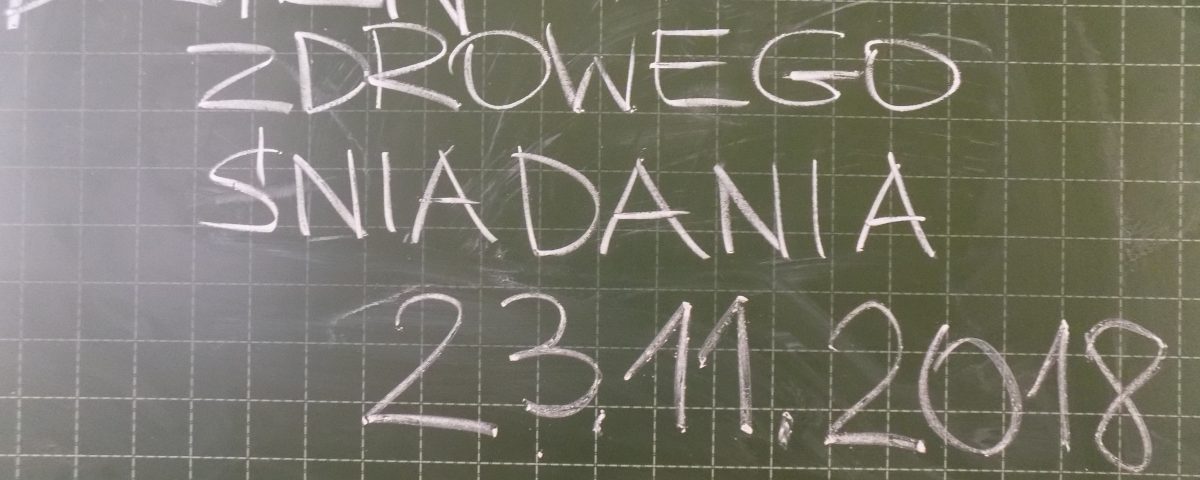 ZDROWEGO
ŚNIADANIA
23.11.2018